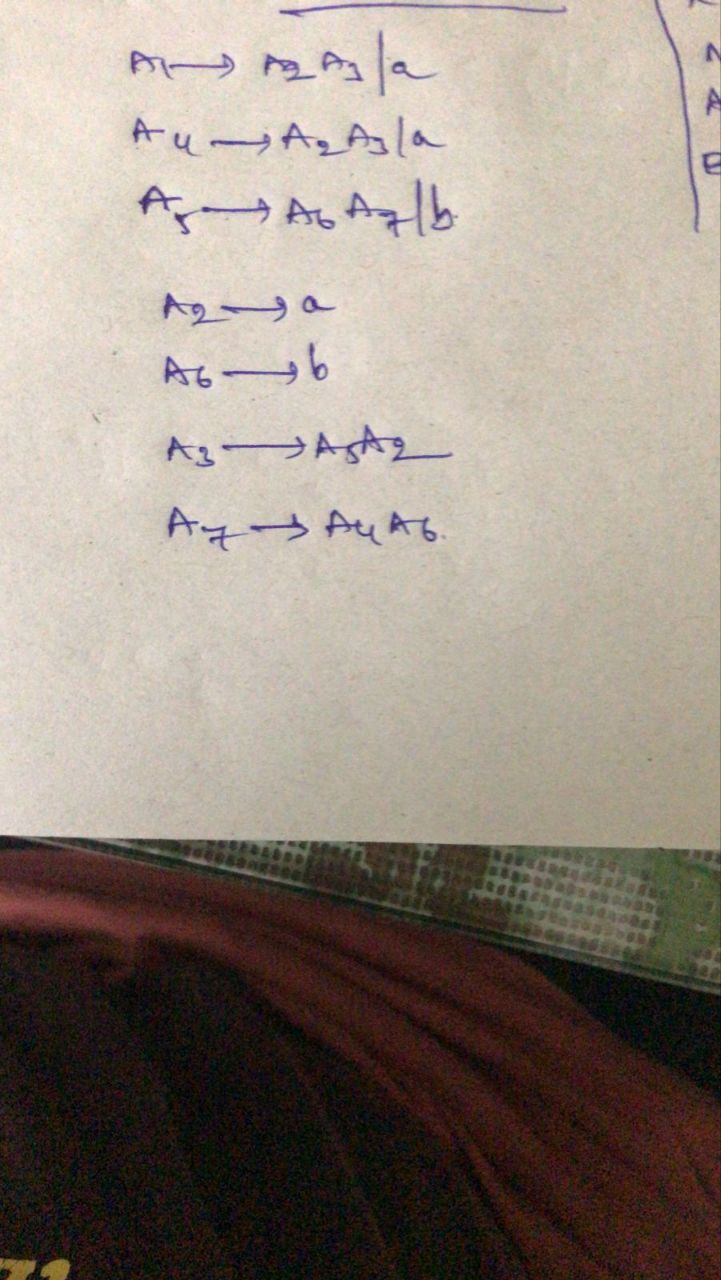 A1 → A2 A3 | a
A4 → A2 A3 | a
A5 → A6 A7 | b
A2 → a
A6 → b
A3 → A5 A2
A7 → A4 A6.